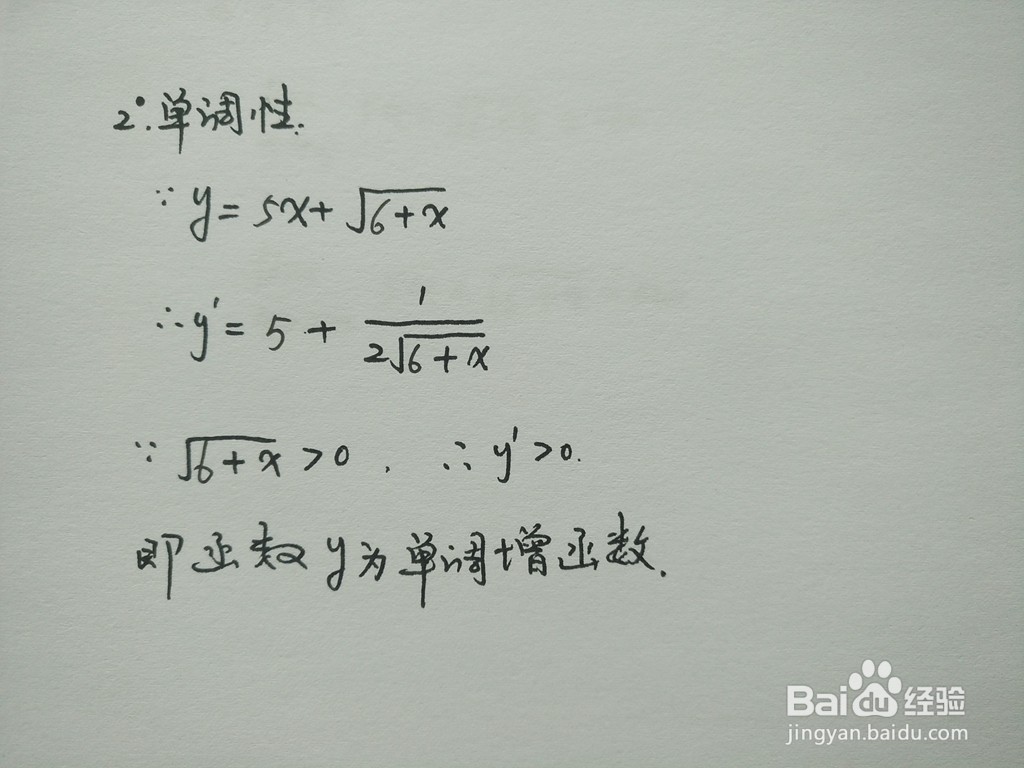 2°.单调性.
∵ y = 5x + √(6+x)
∴ y' = 5 + 1/(2√(6+x))
∵ √(6+x) > 0 , ∴ y' > 0.
即函数y为单调增函数.
Bai du 经验
jingyan.baidu.com